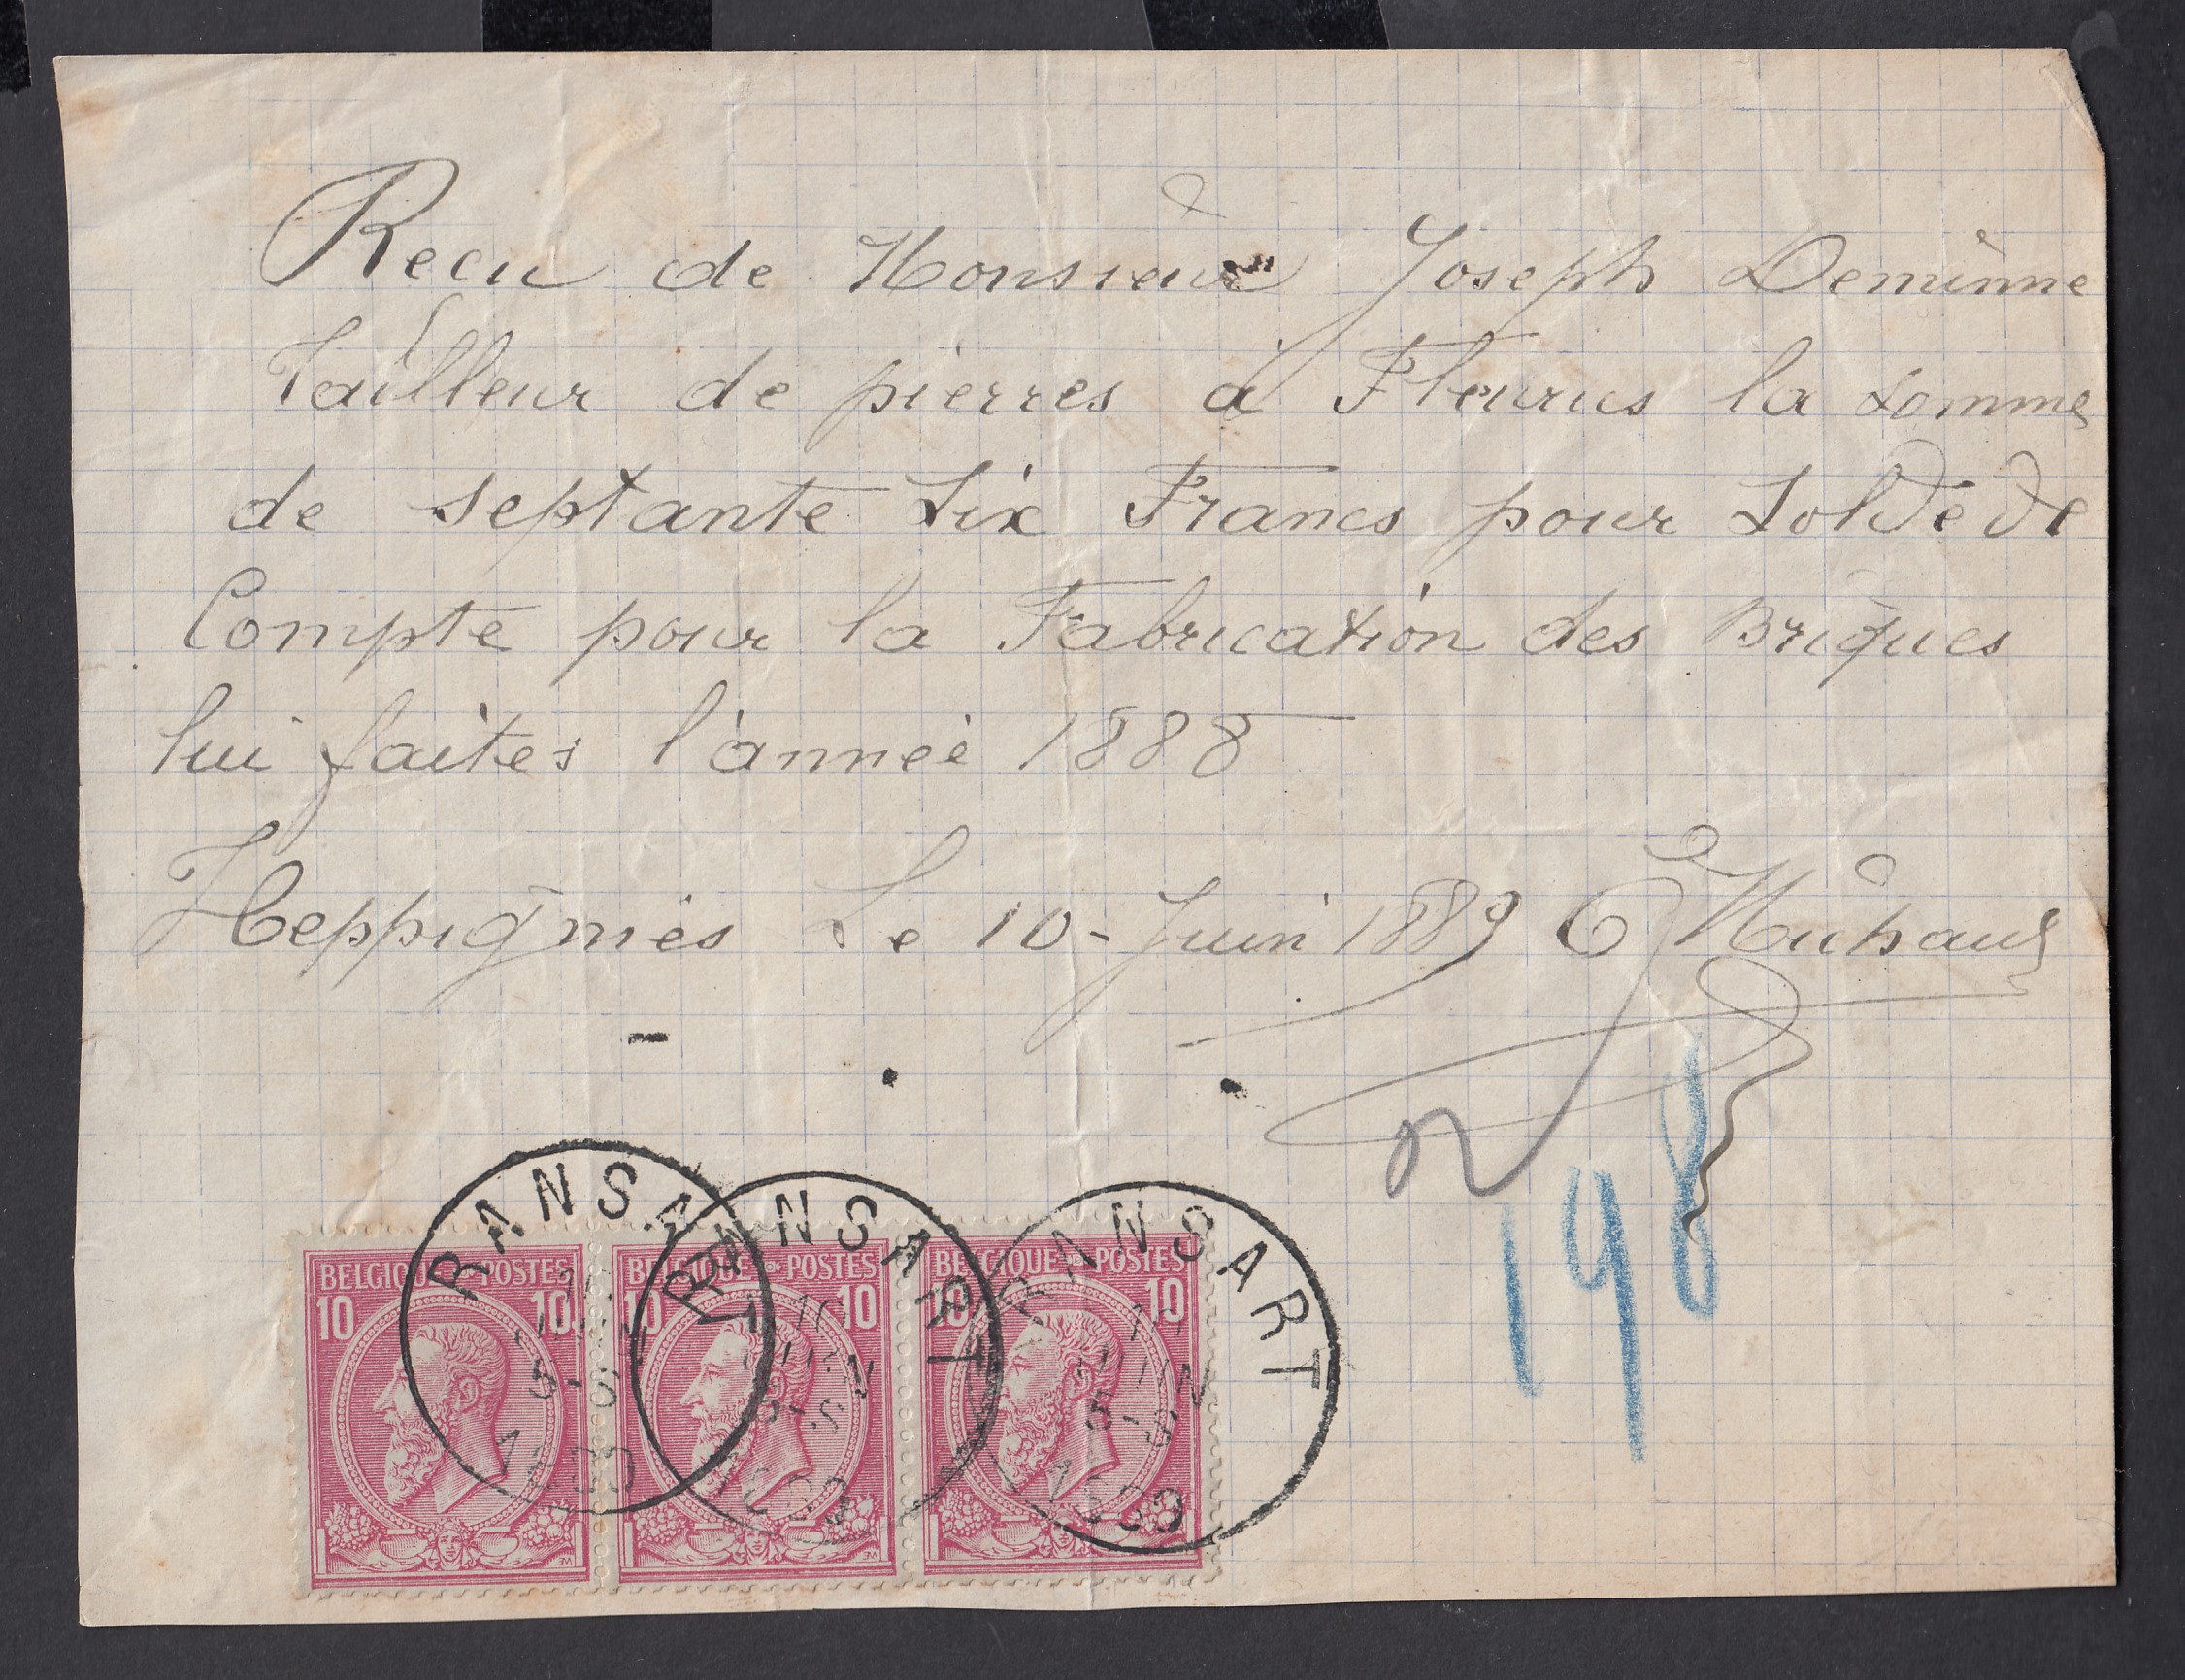 Reçu de Monsieur Joseph Deminne
Tailleur de pierres à Fleurus la somme
de septante six Francs pour Solde de
Compte pour la Fabrication des Briques
lui faites l'année 1888
Heppignies Le 10 - Juin 1889
198
RANSART RANSART RANSART
BELGIQUE POSTES BELGIQUE POSTES BELGIQUE POSTES
10 10 10 10 10 10
10 JUIN
1889